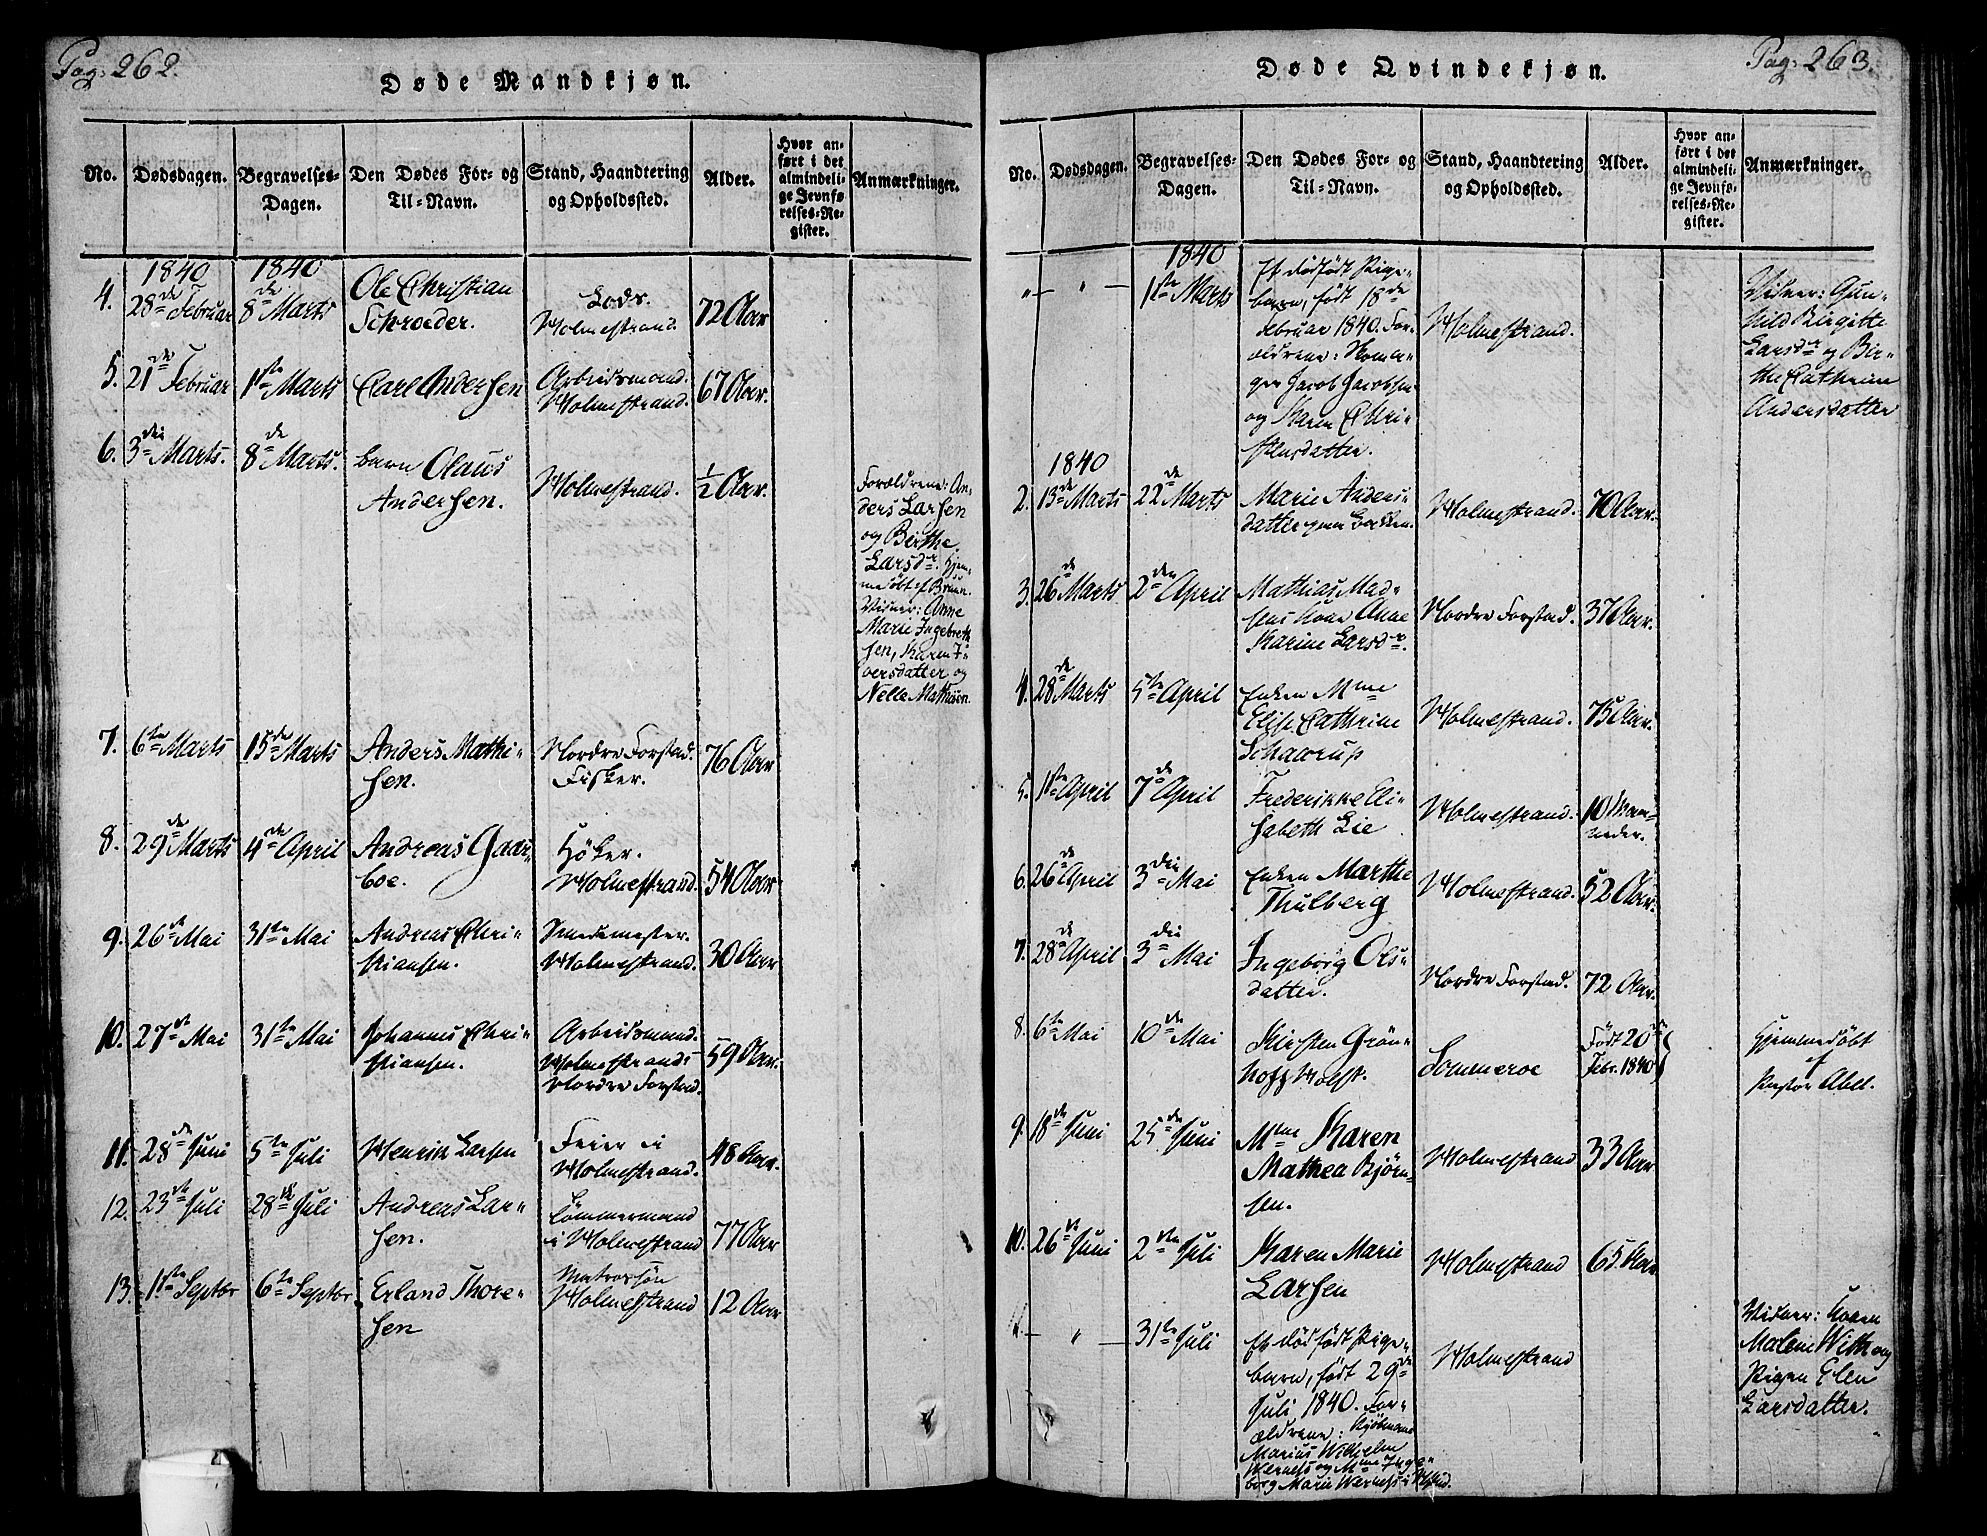 Pag: 262.
Døde Mandkjøn.
No. Dødsdagen. Begravelses-Dagen. Den Dødes For- og Til-Navn. Stand, Haandtering og Opholdssted. Alder. Hvor anført i det almindelige Jevnførelses-Register. Anmærkninger.
1840 1840
4. 28de Februar 8de Marts Ole Christian
Schroeder. Lods.
Holmestrand. 72 Aar
5. 21de Februar 1ste Marts Carl Andersen Arbeidsmand.
Holmestrand. 67 Aar.
6. 3die Marts. 8de Marts. barn Claus
Andersen. Holmestrand. ½ Aar.
Forældrene: An-
ders Larsen
og Birthe
Larsdr. Hjem-
medøbt af Bruun.
Vidner: Anne
Marie Ingebreth
sen, Karen I-
versdatter og
Nelle Mathisen.
7. 6te Marts 15de Marts Anders Mathi-
sen. Nordre Forstad.
Fisker. 76 Aar
8. 29de Marts 4de April Andreas Gaar-
boe. Høker.
Holmestrand. 54 Aar
9. 26de Mai 31te Mai Andreas Chri-
stiansen. Smedemester.
Holmestrand. 30 Aar
10. 27de Mai 31te Mai Johannes Chri-
stiansen. Arbeidsmand.
Holmestrands
Nordre Forstad. 59 Aar.
11. 28de Juni 5te Juli Henrik Larsen Feier i
Holmestrand. 48 Aar.
12. 23de Juli 28de Juli Andreas Lar-
sen. Tømmermand
i Holmestrand 77 Aar
13. 1ste Septbr 6te Septbr. Erland Thore-
sen Matrossøn
Holmestrand 12 Aar
Pag: 263.
Døde Qvindekjøn.
No. Dødsdagen. Begravelses-Dagen. Den Dødes For- og Til-Navn. Stand, Haandtering og Opholdssted. Alder. Hvor anført i det almindelige Jevnførelses-Register. Anmærkninger.
1840
"— " — 1ste Marts Et dødfødt Pige-
barn, født 18de
Februar 1840. For-
ældrene:
Jacob Jacobsen
og Karen Chri-
stensdatter. Holmestrand.
Vidner: Gun-
hild Birgitte
Larsdr og Bir-
the Cathrine
Andersdatter
1840
2. 13de Marts 22de Marts Marie Anders-
datter Holmestrand. 70 Aar.
3. 26de Marts 2den April Mathias Mad-
sens Kone Anne
Karine Larsdr. Nordre Forstad. 37 Aar.
4. 28de Marts 5te April Enken Mme
Elise Cathrine
Schaarup Holmestrand. 75 Aar.
5. 1ste April 7de April Frederikke Eli-
sabeth Lie Holmestrand. 10 Maa-
neder.
6. 26de April 3die Mai Enken Marthe
Thulberg Holmestrand. 52 Aar.
7. 28de April 3die Mai Ingeborg Ols-
datter. Nordre Forstad. 72 Aar.
8. 6te Mai 10de Mai Kirsten Grøn-
hoff Holst. Sommeroe Født 20de
Febr. 1840
Hjemmedøbt
af
Pastor Abel.
9. 18de Juni 25de Juni Mme Karen
Mathea Bjørn-
sen. Holmestrand 33 Aar
10. 26de Juni 2den Juli Karen Marie
Larsen Holmestrand 65 Aar
— " — 31te Juli Et dødfødt Pige-
barn, født 29de
Juli 1840. For-
ældrene: Kjøbmand
Marius Wilhelm
Werness og Mme Inge-
borg Marie Werness i Holmestrand
Vidner: Konen
Malene With og
Pigen Elen
Larsdatter.